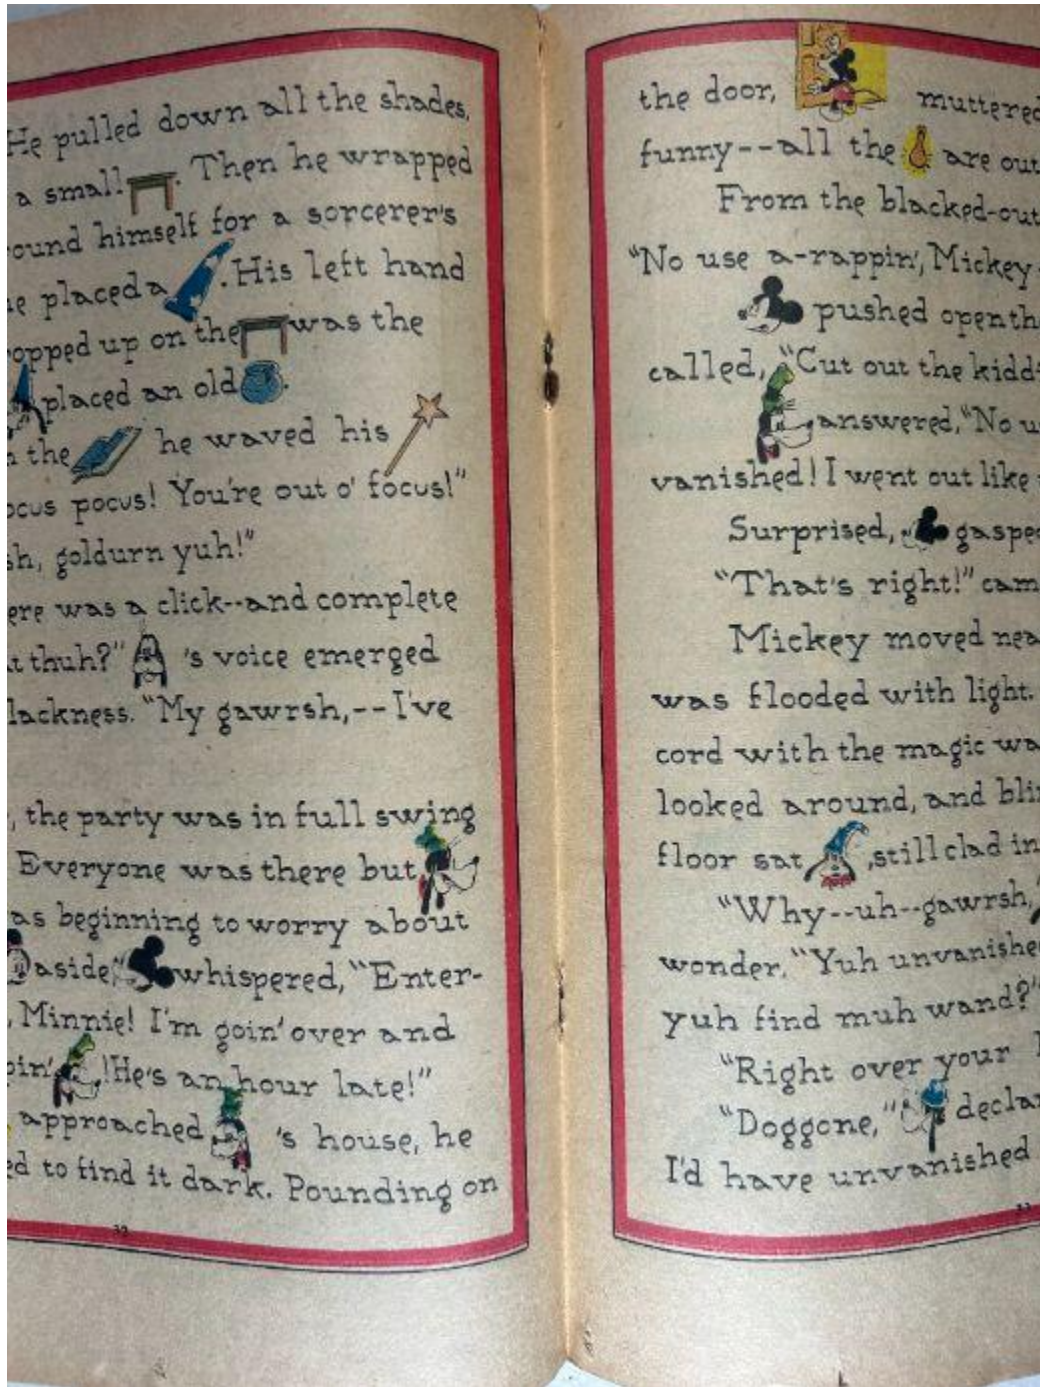 He pulled down all the shades.
a small . Then he wrapped
round himself for a sorcerer's
he placed a . His left hand
opped up on the was the
placed an old .
n the he waved his
ocus pocus! You're out o' focus!"
sh, goldurn yuh!"
ere was a click--and complete
t thuh?" 's voice emerged
lackness. "My gawrsh,--I've
, the party was in full swing
Everyone was there but
as beginning to worry about
aside," whispered, "Enter-
, Minnie! I'm goin' over and
pin' !He's an hour late!"
approached 's house, he
ed to find it dark. Pounding on
the door, muttered
funny--all the are out
From the blacked-out
"No use a-rappin', Mickey-
pushed open th
called, "Cut out the kidd
answered, "No u
vanished! I went out like
Surprised, gaspe
"That's right!" cam
Mickey moved nea
was flooded with light.
cord with the magic wa
looked around, and bli
floor sat ,still clad in
"Why--uh--gawrsh,
wonder. "Yuh unvanishe
yuh find muh wand?"
"Right over your
"Doggone," declar
I'd have unvanished